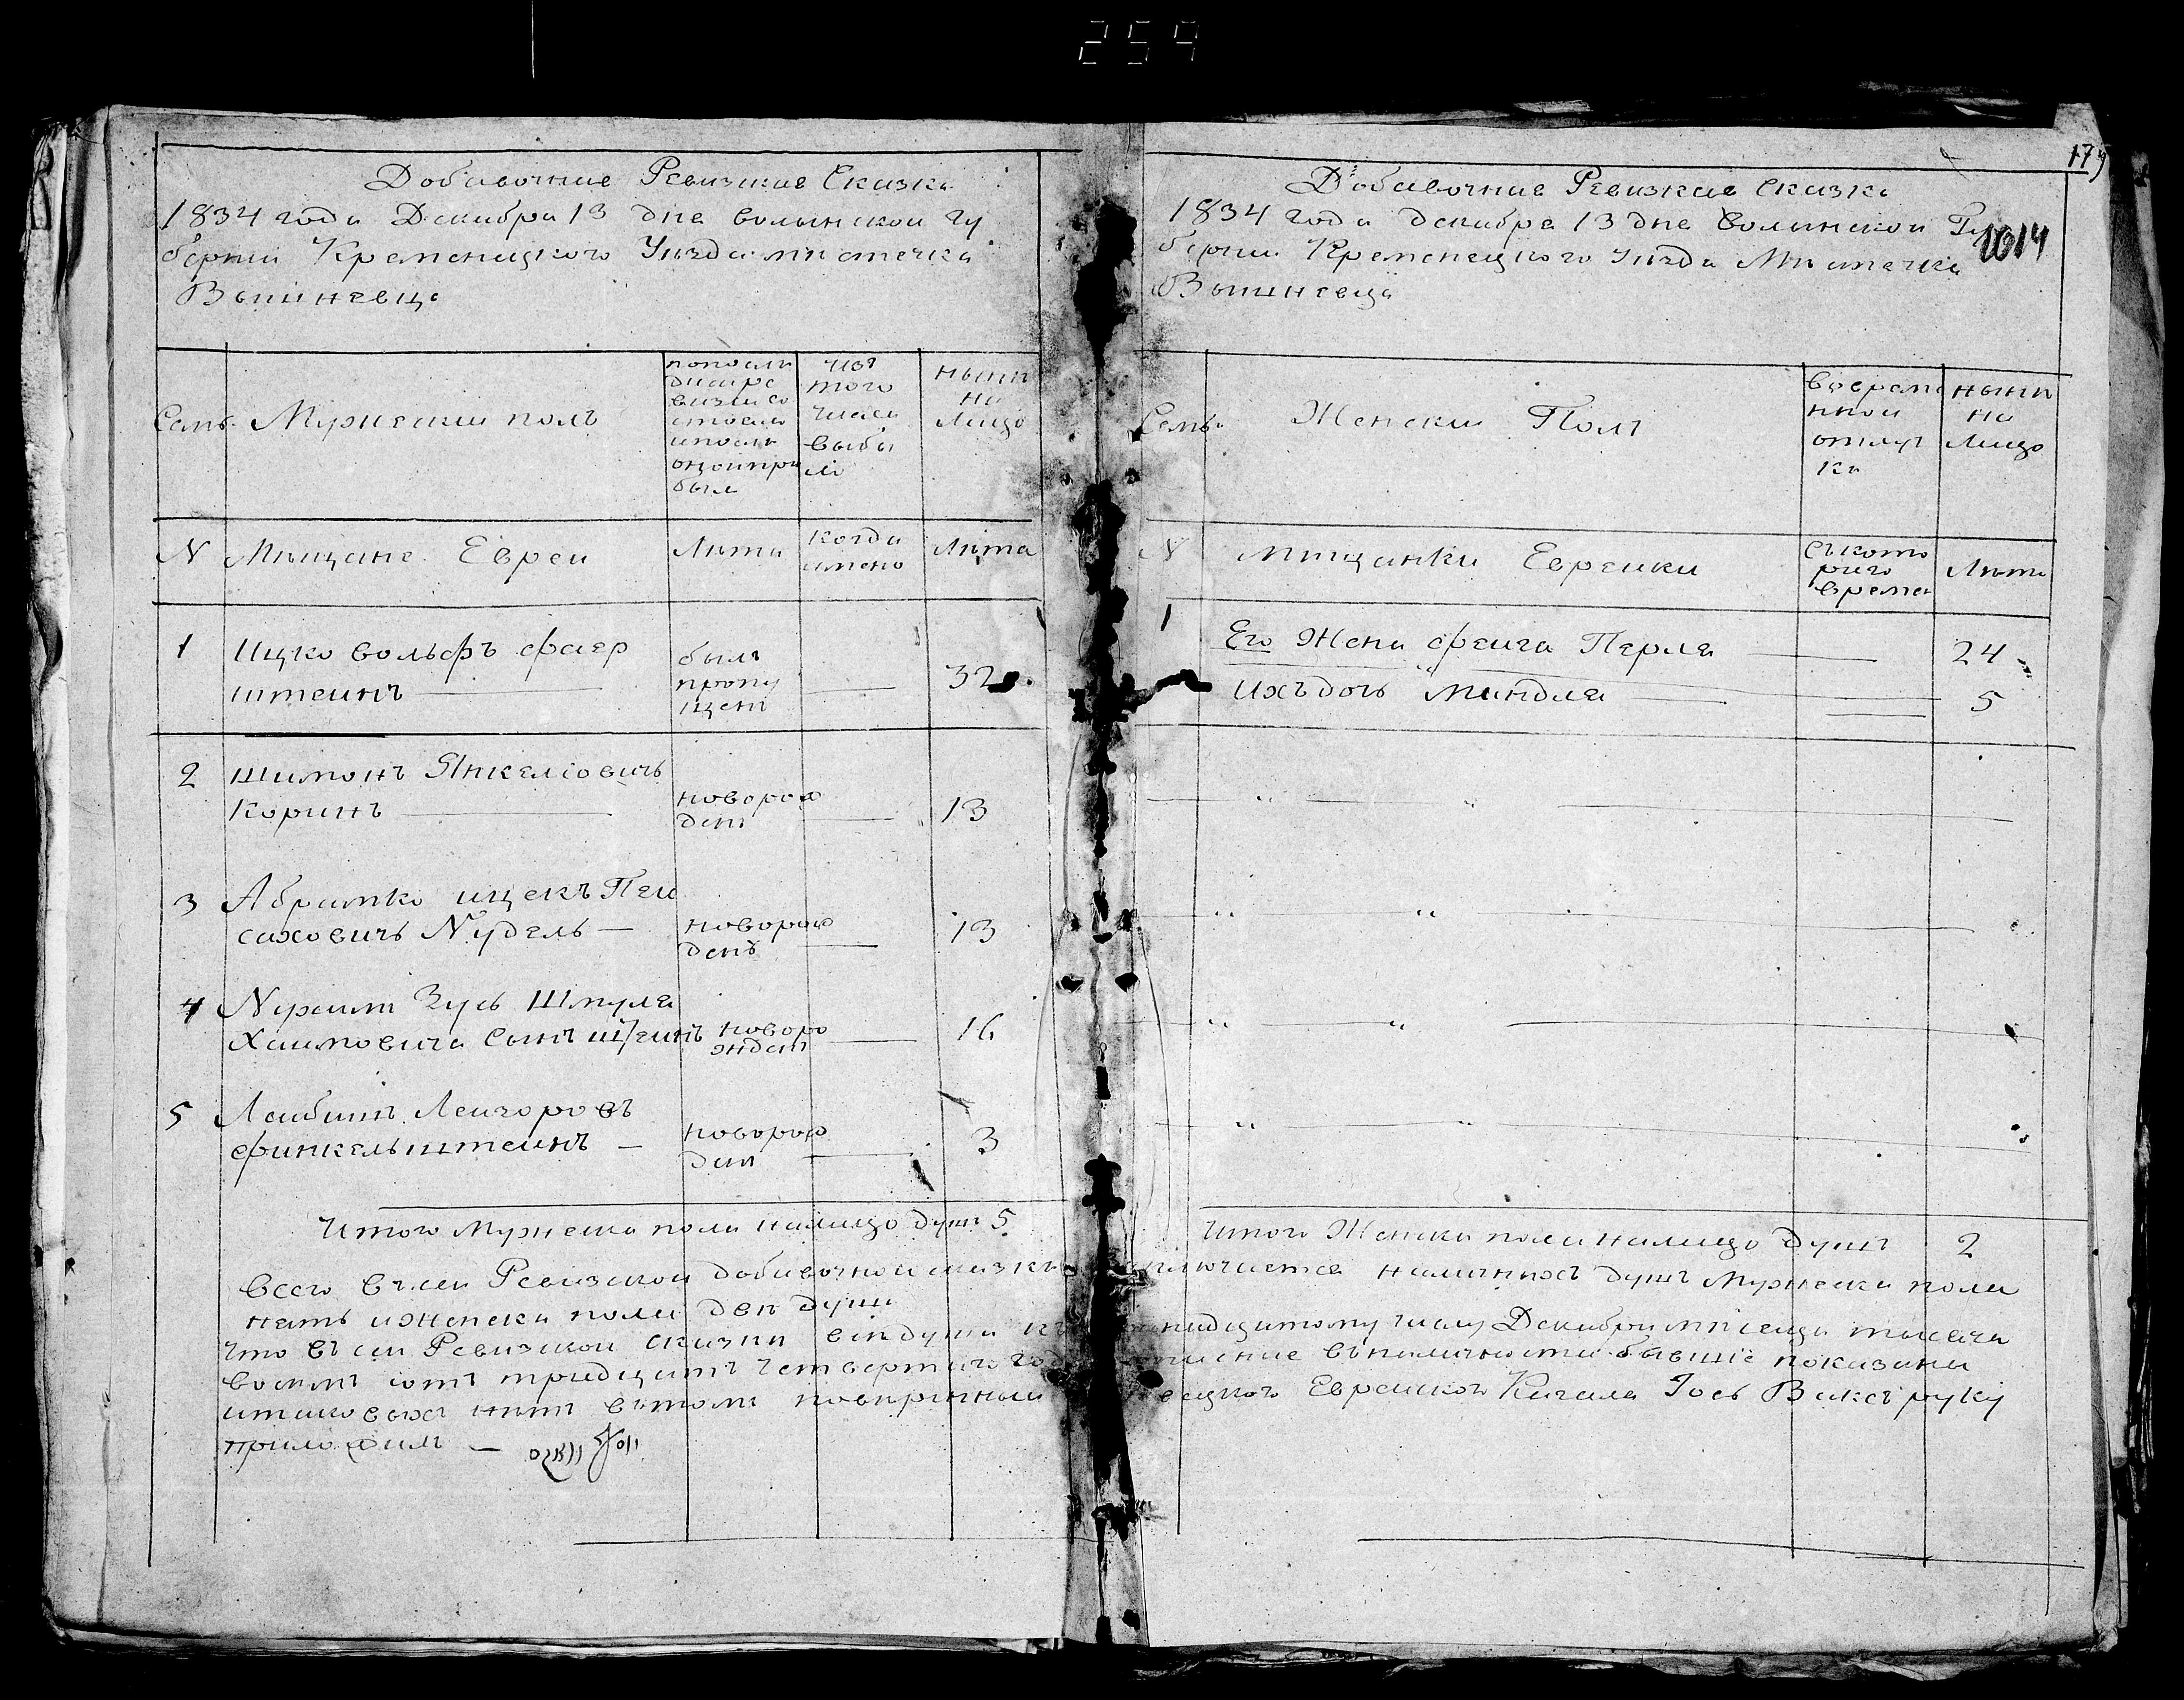 259
Добавочние Ревизкие Сказки
1834 года Декабра 13 дня волынской гу
берний Кременицкого Уезда мистечка
Вышневца
Семь.
Мужеский полъ
попосли
дней ре
визии со
стояло
ипосли
оной при
был
изъ
того
числа
выбы
ло
ныни
на
лицо
N Мещане Евреи
Лита
когда
имено
Лита
1 Ицко вольфъ фаер
штеинъ
былъ
пропу
щен
32
2 шимонъ Янкелiовичъ
Коринъ
новорож
ден
13
3 Абрамко ицекъ Пеи
саховичъ Nудель
новорож
денъ
13
4 Nухим Зусь Шмуля
Хаимовича Сынъ штеинъ
новоро
жден
16
5 Леибишъ Леизоровъ
финкельштеинъ
новорож
ден
3
Итого Мужеска пола налицо душ 5
179
1014
Добавочние Ревизкие Сказки
1834 года декабра 13 дня волынской Гу
берни Кременецкого Уезда Мистечка
Вышневца
Семь.
Женски Полъ
вовреме
нной
отлуч
ки
ныни
на
лицо
N мищанки Евреики
съкото
раго
времен
Лита
1 Его Жена феига Перля 24
Ихъ дочь Миндля 5
Итого Женска пола налицо Душъ 2
Всего въ сеи Ревизской добавочной сказки заключается наличнихъ душъ Мужеска пола
пять иженска пола две души
Что въ сеи Ревизской сказки вси души надцатому числу Декабри мисяца тысяча
восимъ сотъ тридцатъ четвертаго года вналичности бывшiе показани
итаковых нитъ втомъ повиренный Еврейскаго Кагала Iось Ваксъ руку
приложилъ — יוסף וואקס